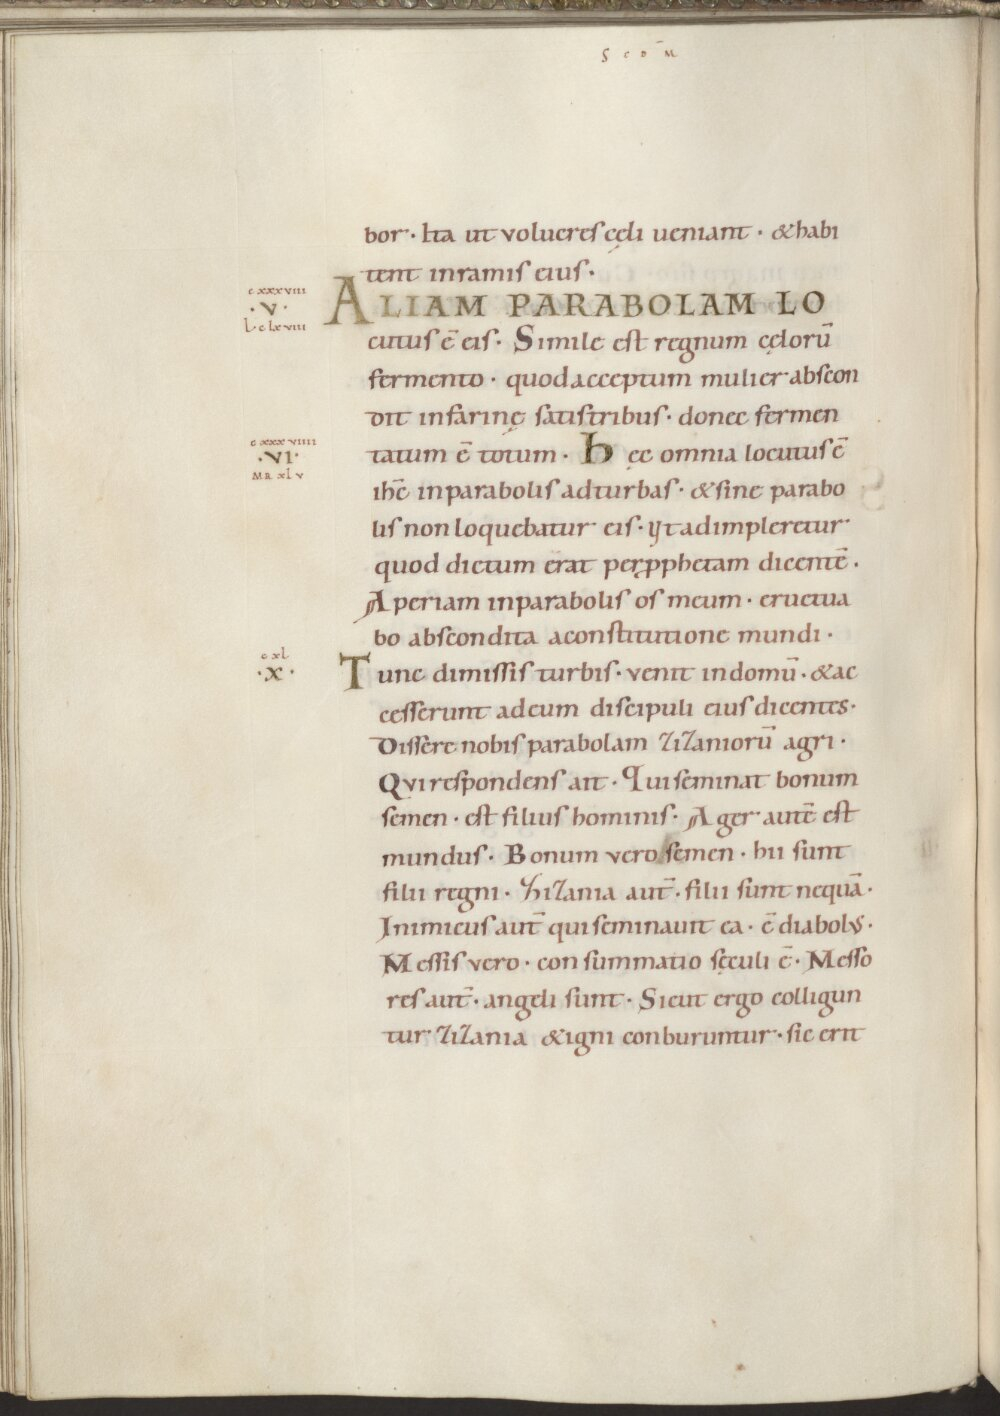 SCD̄M
bor · Ita ut volucres cęli ueniant · & habi
tent inramis eius ·
cxxxviii
· V ·
L · clxviii
ALIAM PARABOLAM LO
cutus ē eis · Simile est regnum cęlorū
fermento · quod acceptum mulier abscon
dit infarinę satis tribus · donec fermen
cxxxviiii
· VI ·
MR xlv
tatum ē totum · Hęc omnia locutus ē
ihc̄ inparabolis adturbas · & sine parabo
lis non loquebatur eis · ut adimpleretur
quod dictum erat per ꝓphetam dicentē ·
Aperiam inparabolis os meum · eructua
bo abscondita aconstitutione mundi ·
cxl
· X ·
Tunc dimissis turbis · venit indomū · & ac
cesserunt adeum discipuli eius dicentes ·
Dissere nobis parabolam zizaniorū agri ·
Qui respondens ait · Qui seminat bonum
semen · est filius hominis · Ager autē est
mundus · Bonum vero semen · hii sunt
filii regni · Zizania aut̄ · filii sunt nequā ·
Inimicus aut̄ qui seminauit ea · ē diabolus ·
Messis vero · consummatio sęculi ē · Messo
res aut̄ · angeli sunt · Sicut ergo colligun
tur zizania & igni conburuntur · sic erit